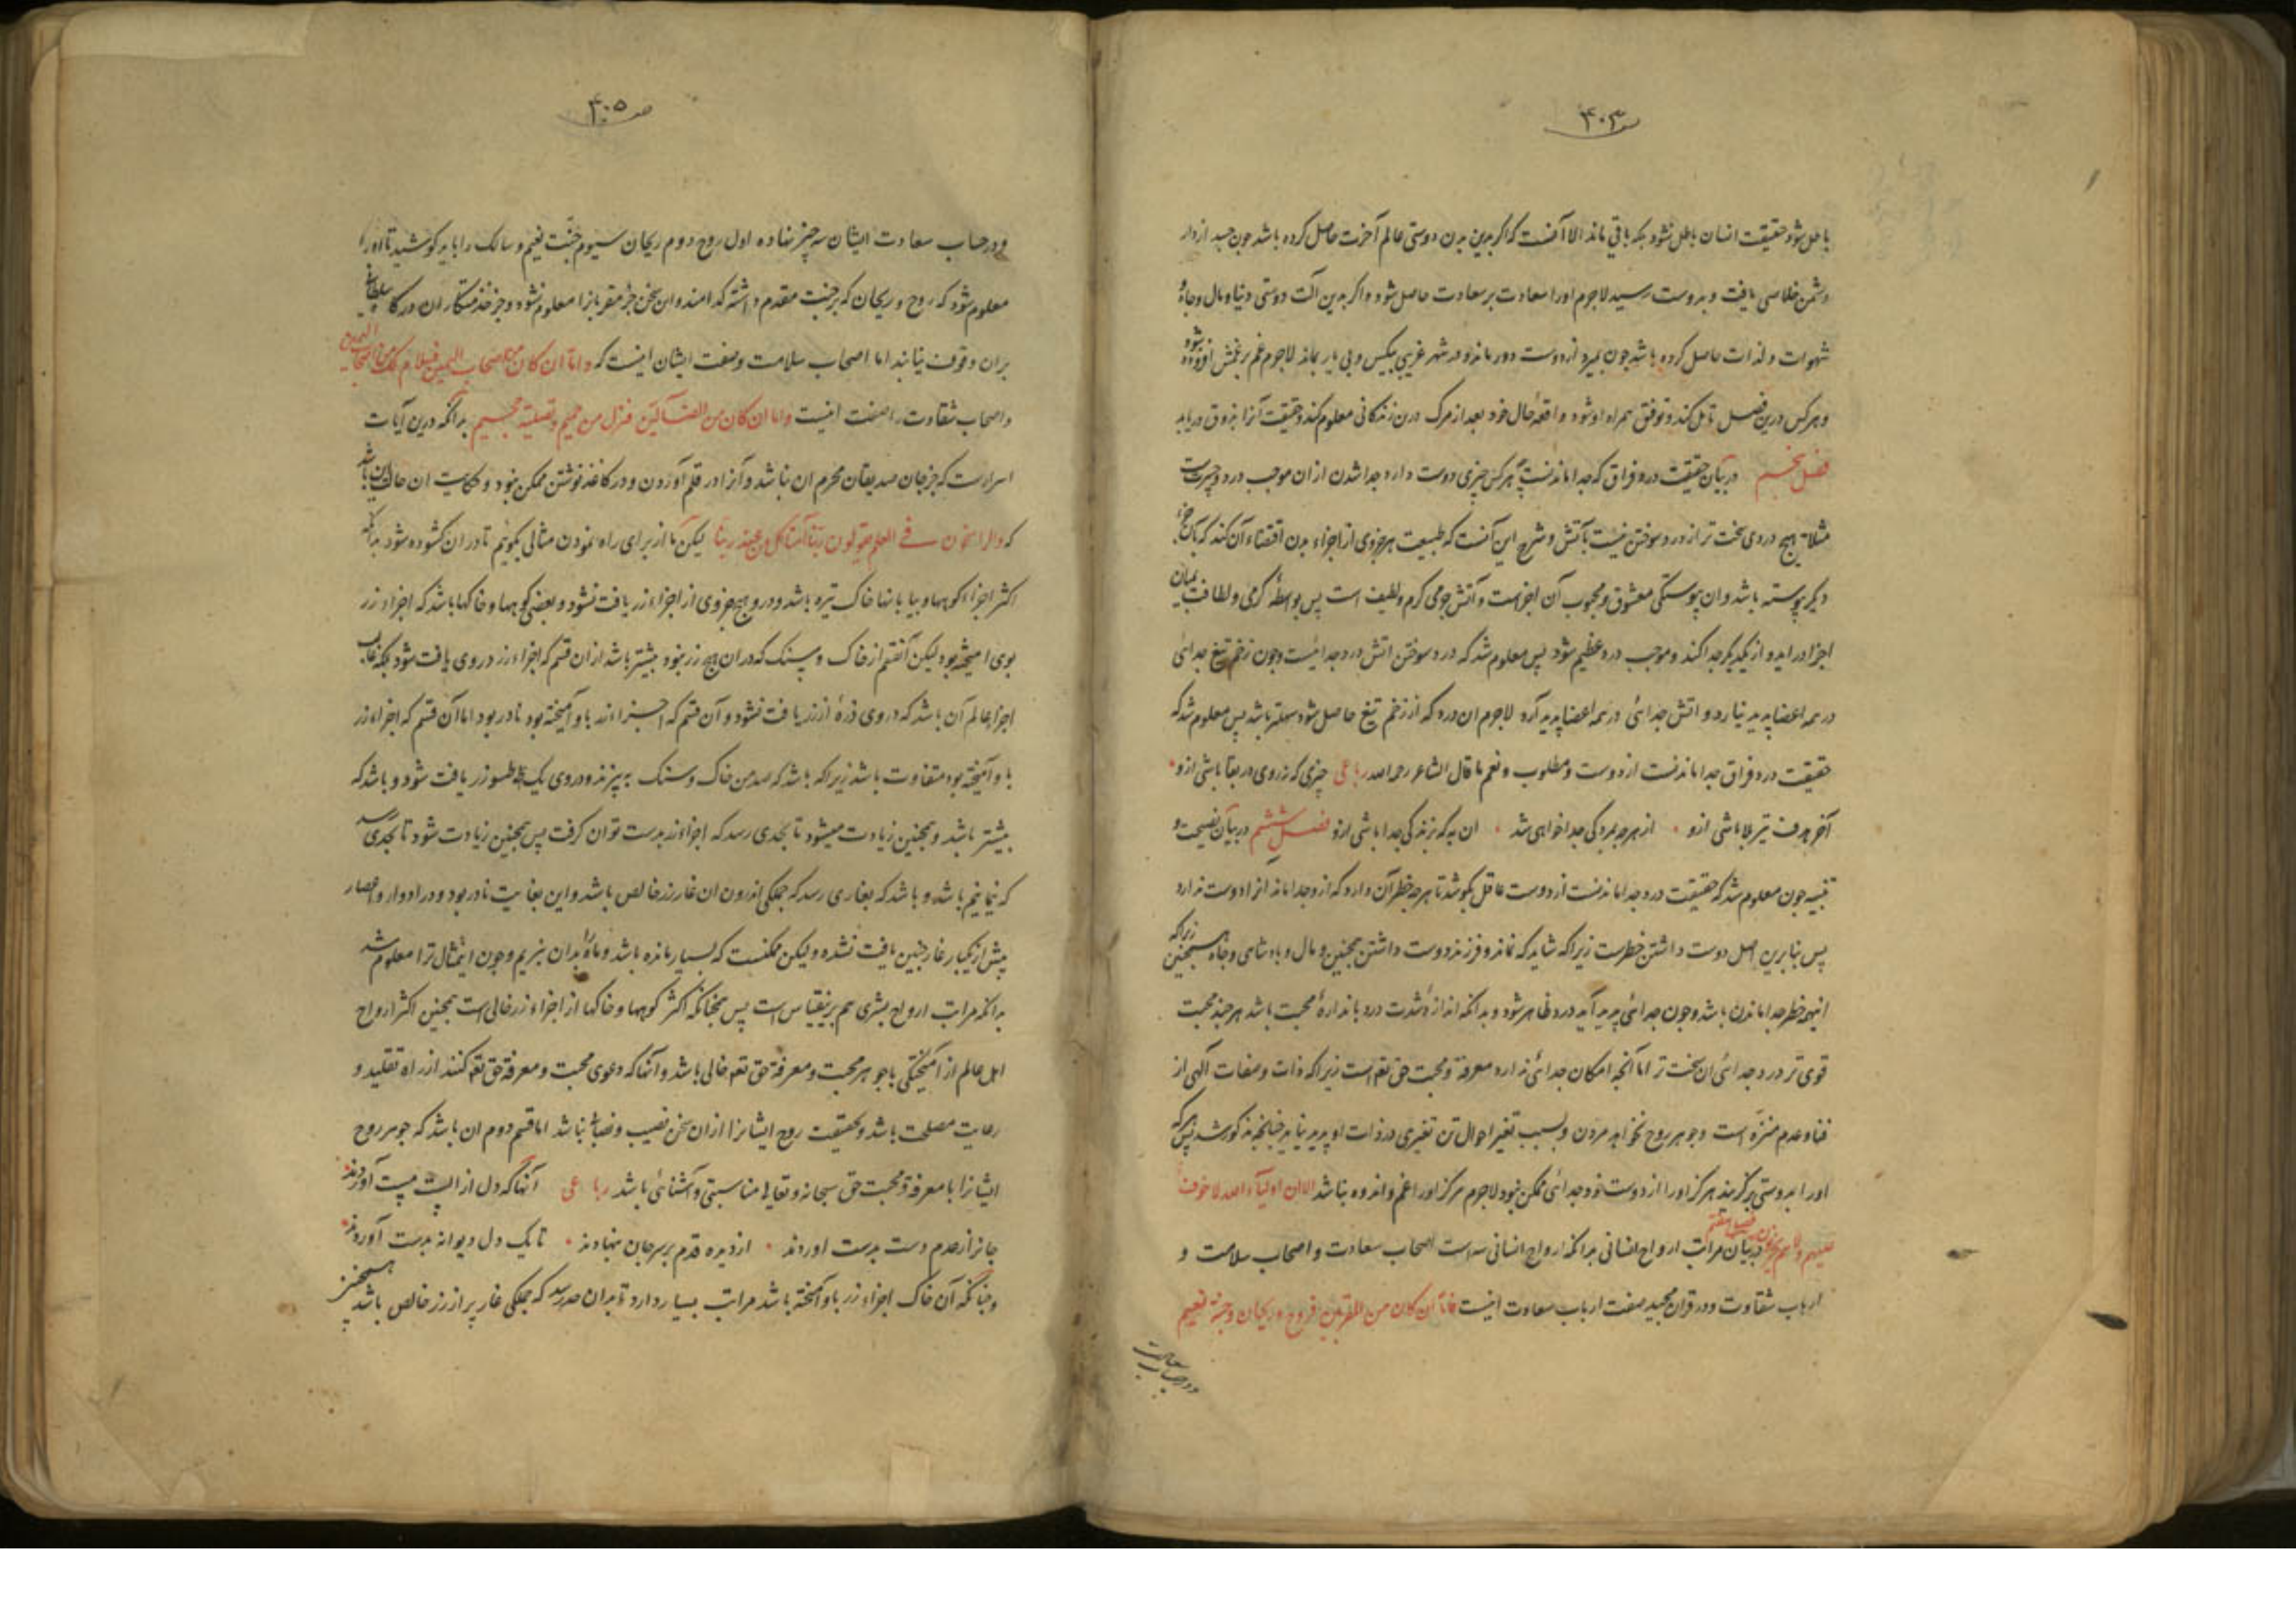 ۴۰۳
باطل شود حقیقت انسان باطل نشود بلکه باقی ماند الا آنست که اگر بدین بدن دوستی عالم آخرت حاصل کرده باشد چون جسد از دار
دشمن خلاصی یافت و بدوست رسید لاجرم اورا سعادت بر سعادت حاصل شود و اگر بدین آلت دوستی دنیا و مال و جاه و
شهوات و لذات حاصل کرده باشد چون بمیرد از دوست دور ماند و در شهر غریبی بیکس و بی یار بماند لاجرم غم بر غمش افزوده شود
و هر کس درین فصل تامل کند و توفیق همراه او شود واقعهٔ حال خود بعد از مرک درین زندکانی معلوم کند و حقیقت آنرا بذوق دریابد
فصل پنجم در بیان حقیقت درد فراق که جدا ماندنست هر کس چیزی دوست دارد جدا شدن از ان موجب درد و حسرت
مثلا هیچ دردی سخت تر از درد سوختن نیست بآتش و شرح این آنست که طبیعت هر جزوی از اجزاء بدن اقتضاء آن کند که بآن جزء
دیکر پیوسته باشد و ان پیوستکی معشوق و محبوب آن اجزاست و آتش جرمی کرم و لطیف است پس بواسطهٔ کرمی و لطافت بمیان
اجزا در اید و از یکدیکر جدا کند و موجب درد عظیم شود پس معلوم شد که درد سوختن اتش درد جدائیست و چون زخم تیغ جدائی
در همه اعضا پدید نیارد و اتش جدائی در همه اعضا پدید آرد لاجرم ان درد که از زخم تیغ حاصل شود سهلتر باشد پس معلوم شد که
حقیقت درد فراق جدا ماندنست از دوست و مطلوب و نعم ما قال الشاعر رحمه الله رباعی چیزی که بروی در بقا باشی ازو
آخر هدف تیر بلا باشی ازو از هر چه بمردکی جدا خواهی شد ان به که بزندکی جدا باشی ازو فصل ششم در بیان نصیحت و
تنبیه چون معلوم شد که حقیقت درد جدا ماندنست از دوست عاقل بکوشد تا هر چه خطر آن دارد که ازو جدا ماند انرا دوست ندارد
پس بنابرین اصل دوست داشتن خطرست زیرا که شاید که نماند و فرزند دوست داشتن همچنین و مال و پادشاهی و جاه همچنین زیرا که
اینهمه خطر جدا ماندن باشد و چون جدائی پدید آید درد ظاهر شود و بدانکه اندازهٔ شدت درد باندازهٔ محبت باشد هر چند محبت
قوی تر درد جدائی ان سخت تر اما آنچه امکان جدائی ندارد معرفة و محبت حق تعه است زیرا که ذات و صفات الهی از
فنا و عدم منزه است و جوهر روح نخواهد مردن و بسبب تغیر احوال تن تغیری در ذات او پدید نیاید چنانچه مذکور شد پس هر که
اورا بدوستی برکزیند هرکز اورا از دوست خود جدائی ممکن نبود لاجرم هرکز اورا غم و اندوه نباشد الا ان اولیاء الله لا خوف
علیهم و لا هم یحزنون فصل هفتم در بیان مراتب ارواح انسانی بدانکه ارواح انسانی سه است اصحاب سعادت و اصحاب سلامت و
ارباب شقاوت و در قران مجید صفت ارباب سعادت اینست فاما ان کان من المقربین فروح و ریحان و جنة نعیم
و در حساب سعادت
۴۰۵
و در حساب سعادت ایشان سه چیز نهاده اول روح دوم ریحان سیوم جنت نعیم و سالک را باید کوشید تا اورا
معلوم شود که روح و ریحان که بر جنت مقدم داشته کدامند و ان سخن جز مقربانرا معلوم نشود و جز خدمتکاران درکاه سلطان
بران وقوف نیابند اما اصحاب سلامت وصفت ایشان اینست که و اما ان کان من اصحاب الیمین فسلام لک من اصحاب الیمین
و اصحاب شقاوت را صفت اینست و اما ان کان من الضالین فنزل من حمیم و تصلیة جحیم بدانکه درین آیات
اسرارست که جز جان صدیقان محرم ان نباشد و آنرا در قلم آوردن و در کاغذ نوشتن ممکن نبود و حکایت ان حال این باشد
که والراسخون فی العلم یقولون ربنا آمنا کل من عند ربنا لیکن ما از برای راه نمودن مثالی بکوییم تا در ان کشوده شود بدانکه
اکثر اجزاء کوهها و بیابانها خاک تیره باشد و در و هیچ جزوی از اجزاء زر یافت نشود و بعضی کوهها و خاکها باشد که اجزاء زر
بوی امیخته بود لیکن آنقسم از خاک و سنک که در ان هیچ زر نبود بیشتر باشد از ان قسم که اجزاء زر در وی یافت شود بلکه غالب
اجزا عالم آن باشد که در وی ذرهٔ از زر یافت نشود و آن قسم که اجزاء زر باو آمیخته بود نادر بود اما آن قسم که اجزاء زر
باو آمیخته بود متفاوت باشد زیرا که باشد که صد من خاک و سنک بپزند و در وی یک طسو زر یافت شود و باشد که
بیشتر باشد و همچنین زیادت میشود تا بحدی رسد که اجزاء زر بدست توان کرفت پس همچنین زیادت شود تا بحدی رسد
که نیمانیم باشد و باشد که بغاری رسد که جملکی اندرون ان غار زر خالص باشد و این بغایت نادر بود و در ادوار و اعصار
پیش از یکبار غار چنین یافت نشده و لیکن ممکنست که بسیار مانده باشد و ما راه بدان نبریم و چون این مثال ترا معلوم شد
بدانکه مراتب ارواح بشری هم برینقیاس است پس همچنانکه اکثر کوهها و خاکها از اجزاء زر خالی است همچنین اکثر ارواح
اهل عالم از امیختکی با جوهر محبت و معرفة حق تعه خالی باشد و آنها که دعوی محبت و معرفة حق تعه کنند از راه تقلید و
رعایت مصلحت باشد و بحقیقت روح ایشانرا از ان سخن نصیب و نصابی نباشد اما قسم دوم ان باشد که جوهر روح
ایشانرا با معرفة و محبت حق سبحانه و تعالی مناسبتی و آشنائی باشد رباعی آنها که دل از الست مست آوردند
جانرا ز عدم دست بدست اوردند از دیده قدم بر سر جان بنهادند تا یک دل دیوانه بدست آوردند
و چنانکه آن خاک اجزاء زر باو آمیخته باشد مراتب بسیار دارد تا بدان حد رسد که جملکی غار پر از زر خالص باشد همچنین